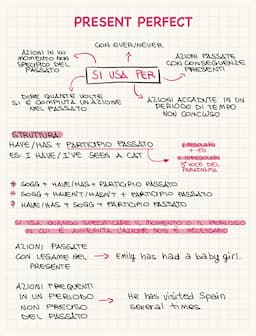 PRESENT PERFECT
CON EVER/NEVER
AZIONI IN UN
MOMENTO NON
SPECIFICO DEL
PASSATO
AZIONI PASSATE
CON CONSEGUENZE
PRESENTI
SI USA PER
DIRE QUANTE VOLTE
SI È COMPIUTA UN'AZIONE
NEL PASSATO
AZIONI ACCADUTE IN UN
PERIODO DI TEMPO
NON CONCLUSO
STRUTTURA
HAVE/HAS + PARTICIPIO PASSATO
ES: I HAVE/I'VE SEEN A CAT
REGOLARI
+ -ED
IRREGOLARI
3° VOCE DEL
PARADIGMA
+ SOGG + HAVE/HAS + PARTICIPIO PASSATO
SOGG + HAVEN'T/HASN'T + PARTICIPIO PASSATO
? HAVE/HAS + SOGG + PARTICIPIO PASSATO
SI USA QUANDO SPECIFICARE IL MOMENTO O IL PERIODO
IN CUI È AVVENUTA L'AZIONE NON È NECESSARIO
AZIONI PASSATE
CON LEGAME NEL
PRESENTE
Emily has had a baby girl.
AZIONI FREQUENTI
IN UN PERIODO
NON PRECISO
DEL PASSATO
He has visited Spain
several times.